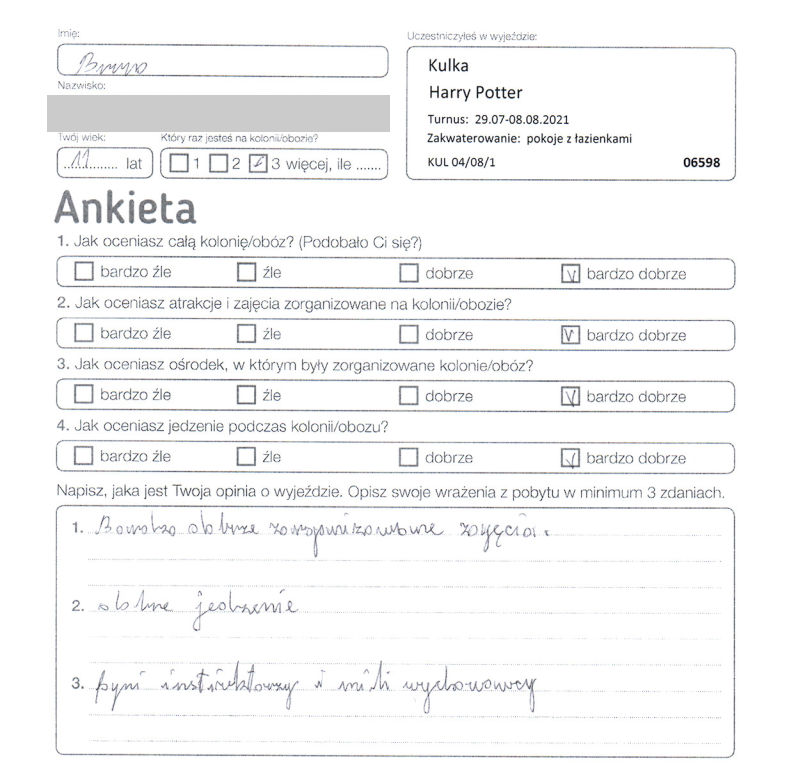 Imię:
Bruno
Uczestniczyłeś w wyjeździe:
Kulka
Harry Potter
Turnus: 29.07-08.08.2021
Zakwaterowanie: pokoje z łazienkami
KUL 04/08/1 06598
Nazwisko:
Twój wiek:
11 lat
Który raz jesteś na kolonii/obozie?
1 2 3 więcej, ile .......
Ankieta
1. Jak oceniasz całą kolonię/obóz? (Podobało Ci się?)
bardzo źle źle dobrze bardzo dobrze
2. Jak oceniasz atrakcje i zajęcia zorganizowane na kolonii/obozie?
bardzo źle źle dobrze bardzo dobrze
3. Jak oceniasz ośrodek, w którym były zorganizowane kolonie/obóz?
bardzo źle źle dobrze bardzo dobrze
4. Jak oceniasz jedzenie podczas kolonii/obozu?
bardzo źle źle dobrze bardzo dobrze
Napisz, jaka jest Twoja opinia o wyjeździe. Opisz swoje wrażenia z pobytu w minimum 3 zdaniach.
1. Bardzo dobrze zorganizowane zajęcia.
2. dobre jedzenie
3. fajni instruktorzy i mili wychowawcy